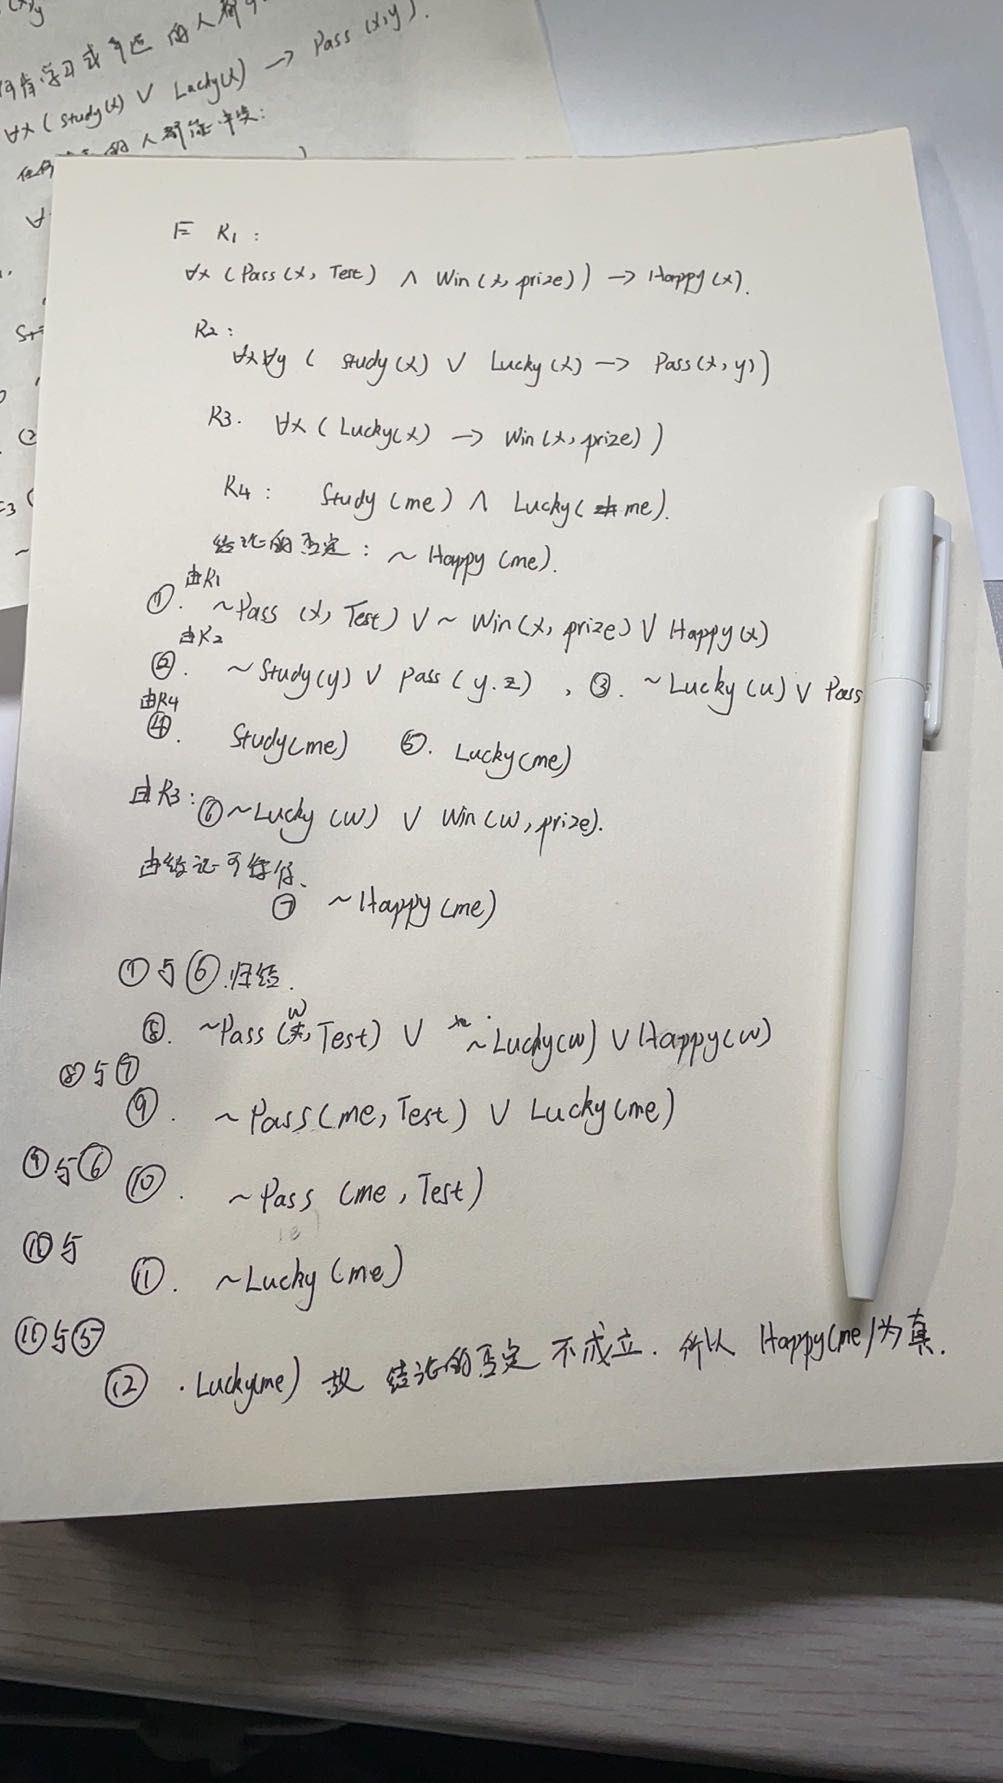 y
学习或幸运的人都
∀x (Study(x) ∨ Lucky(x) → Pass(x,y).
的人都能中奖:
∀
R1 :
∀x (Pass(x, Test) ∧ Win(x, prize)) → Happy(x).
R2 :
∀x∀y ( Study(x) ∨ Lucky(x) → Pass(x,y))
R3. ∀x (Lucky(x) → Win(x, prize))
R4 : Study(me) ∧ Lucky(me).
结论的否定 : ~Happy(me).
由R1
①. ~Pass(x, Test) ∨ ~Win(x, prize) ∨ Happy(x)
由R2
②. ~Study(y) ∨ Pass(y.z) , ③. ~Lucky(u) ∨ Pass
由R4
④. Study(me) ⑤. Lucky(me)
由R3: ⑥ ~Lucky(w) ∨ Win(w, prize).
由结论
⑦ ~Happy(me)
①与⑥.归结.
⑧. ~Pass(w, Test) ∨ ~Lucky(w) ∨ Happy(w)
⑧与⑦
⑨. ~Pass(me, Test) ∨ Lucky(me)
⑨与⑥ ⑩. ~Pass (me, Test)
⑩与
⑪. ~Lucky(me)
⑪与⑤
⑫ .Lucky(me) 故 结论的否定 不成立. 所以 Happy(me)为真.